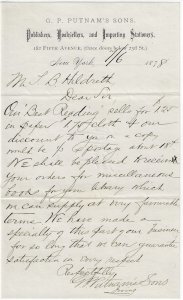 G. P. PUTNAM'S SONS.
Publishers, Booksellers, and Importing Stationers,
182 FIFTH AVENUE, (three doors below 23d St.)
New York 1878
Mr S B Hildreth
Dear Sir
Our "Best Reading" sells for 1 25
in paper & 1 75 cloth & our
discount
will be postage about 10¢
We shall be pleased to receive
Your orders for miscellaneous
books for your library which
we can supply at very favorable
terms. We have made a
specialty of this part of our business
for so long that we can guarantee
satisfaction in every respect
Respectfully
G P Putnams Sons